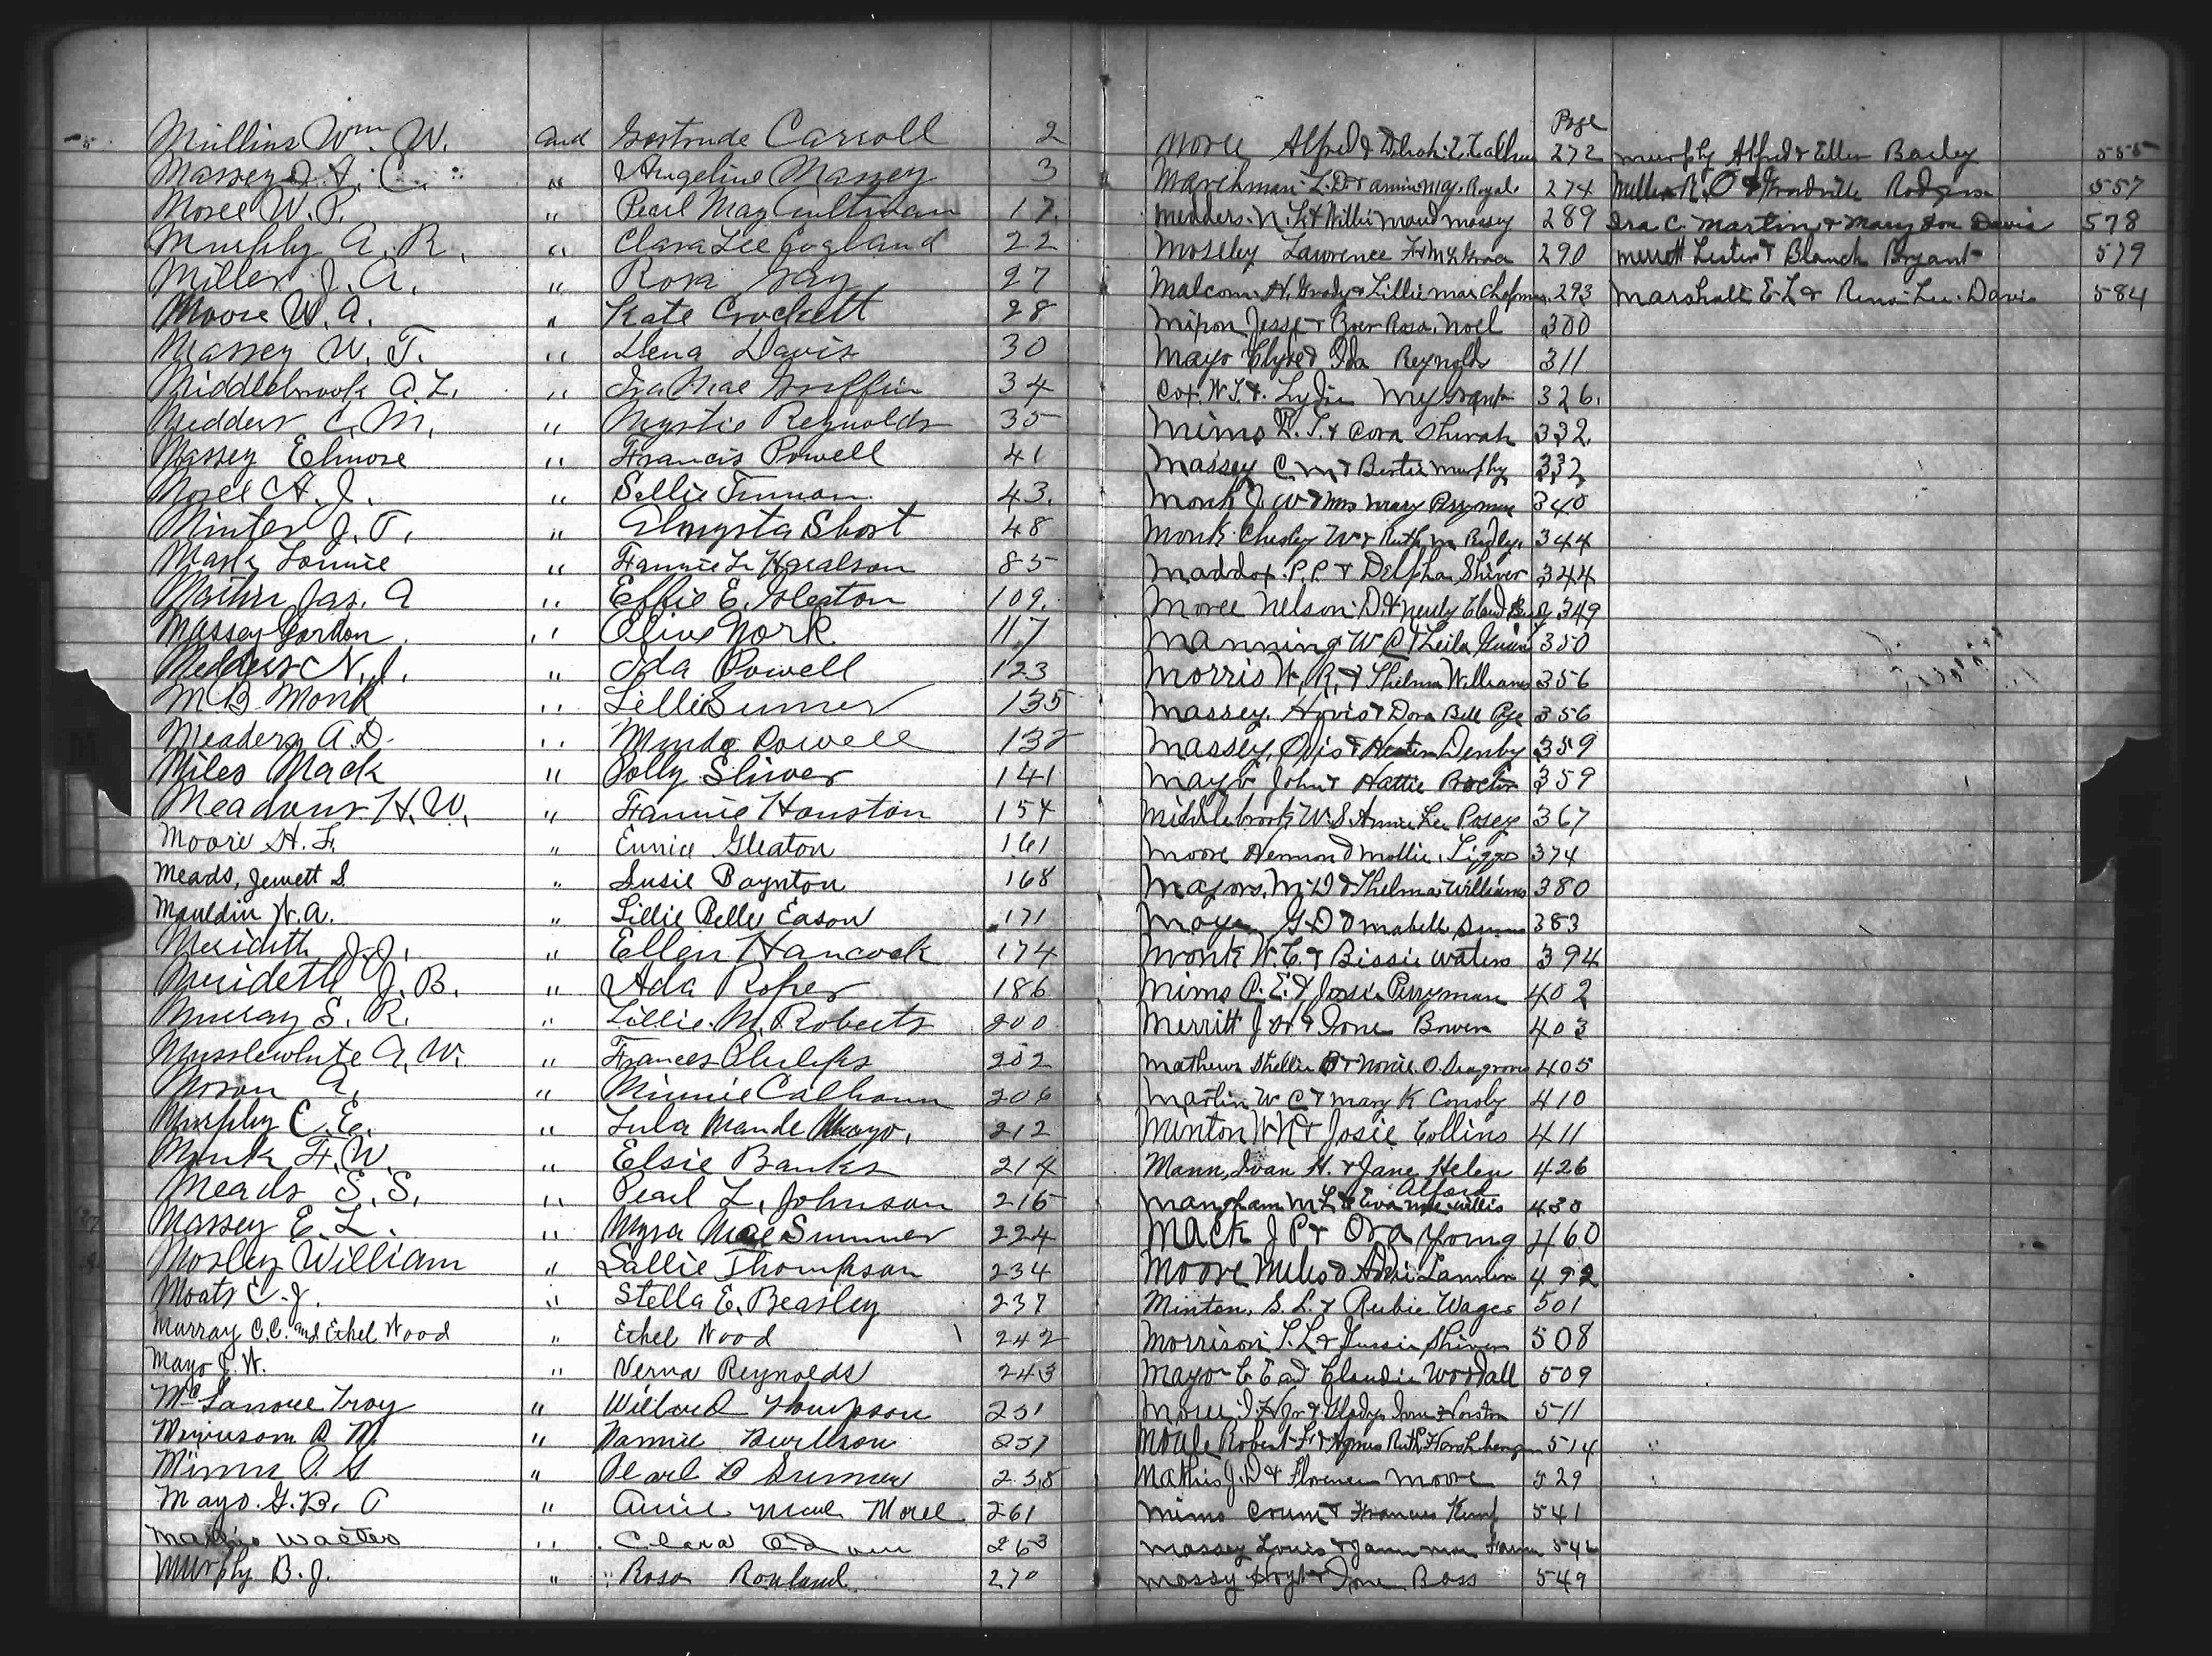 Mullins Wm. W. and Gertrude Carroll 2
Massey J. A. C. " Angeline Massey 3
Moree W. P. " Pearl May Cultman 17
Murphy A. R. " Clara Lee England 22
Miller J. A. " Rosa Gay 27
Moore W. A. " Kate Crockett 28
Massey W. T. " Lena Davis 30
Middlebrook A. L. " Iva Mae Griffin 34
Medders C. M. " Mystis Reynolds 35
Massey Elmore " Francis Powell 41
Moree A. J. " Sallie 43
Minter J. T. " Short 48
Mask Lonnie " Fannie L. Haralson 85
Jas. A " Effie E. Gleaton 109
Massey Gordon " Olive York 117
Medders N. J. " Ida Powell 123
M B Monk " Lillie Sumner 135
Meaders A. D. " Powell 132
Miles Mack " Polly Shiver 141
Meadows H. W. " Fannie Houston 154
Moore H. F. " Eunice Gleaton 161
Meads, Jewett S. " Susie Boynton 168
Mauldin W. A. " Lillie Belle Eason 171
Merideth J. J. " Ellen Hancock 174
Merideth J. B. " Ada Roper 186
Murray S. R. " Lillie M. Roberts 200
Musslewhite A. W. " Frances Philips 202
Moran A. " Minnie Calhoun 206
Murphy C. E. " Lula Maude Mayo 212
Monk F. W. " Elsie Banks 214
Meads S. S. " Pearl L. Johnson 216
Massey E. L. " Myra Mae Sumner 224
Mosley William " Sallie Thompson 234
Moats C. J. " Stella E. Beasley 237
Murray C. C. and Ethel Wood " Ethel Wood 242
Mayo J. W. " Verna Reynolds 243
Troy " Thompson 251
" Nannie Burleson 257
Mimms P. G " Pearl B Sumner 258
Mayo G. B. " Annie Moree 261
Walter " Clara Odom 263
Murphy B. J. " Rosa Rowland 270
Page
Moree Alfred & 272
Marchman L. D. & Annie May Royals 274
Medders N. L. & Willie Maud Massey 289
Moseley Lawrence F. & 290
Malcom H. Grady & Lillie Mai Chapman 293
Mixon Jesse & Rosa Noel 300
Mayo Clyde & Ida Reynolds 311
Cox W. T. & Lydia 326
Mims R. T. & Cora Shirah 332
Massey C. M & Bertie Murphy 332
Monk J. W & Mrs Mary Perryman 340
Monk Chesley W & Ruth M Ridley 344
Maddox P. P. & Delpha Shiver 344
Moree Nelson D. & 349
Manning W C & Leila 350
Morris W. R. & Thelma Williams 356
Massey & Dora Bell Pye 356
Massey, Otis & Denby 359
Mayo John & Hattie 359
Middlebrook W. S. Annie Lee Posey 367
Moore Hermon & Mollie Liggs 374
Majors, M. D & Thelma Williams 380
G. D & Mabell 383
Monk W. C. & Bissie Waters 394
Mims P. E. & Josie Perryman 402
Merritt J & Ione Bowen 403
Mathews Shellie B & Novie O. Seagroves 405
Martin W C & Mary K Conoly 410
Minton W N & Josie Collins 411
Mann, Ivan H. & Jane Helen Alford 426
Mangham M L & Eva Mae Willis 430
Mack J P & Ora Young 460
Moore Miles & 492
Minton, S. L. & Rubie Wages 501
Morrison T. L. & Gussie Shiver 508
Mayo C E and Claudie Woodall 509
& Gladys Irene Horton 511
Robert L. & Agnes Ruth 514
Mathis J. D & Florence Moore 529
Mims Crum & Frances Kemp 541
Massey Louis & 542
Massy Hoyt & Ione Bass 549
Murphy Alfred & Ellen Bailey 555
Miller R. O & 557
Ira C. Martin & Mary Lou Davis 578
Merrett Lester & Blanch Bryant 579
Marshall E L & Rena Lee Davis 584